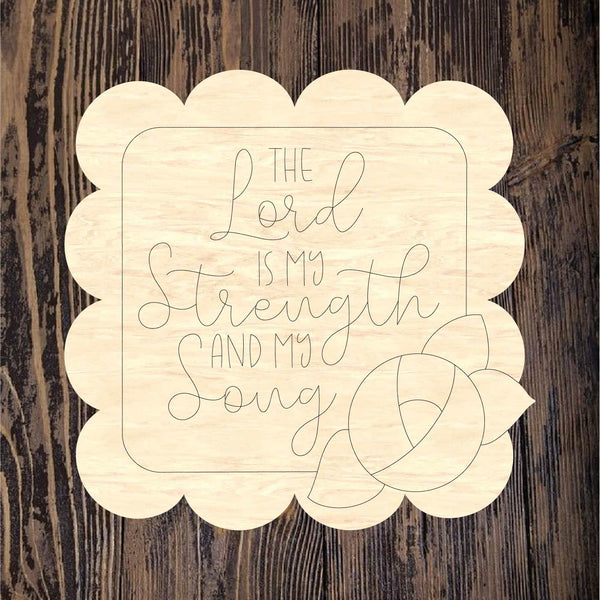 THE
Lord
IS MY
Strength
AND MY
Song